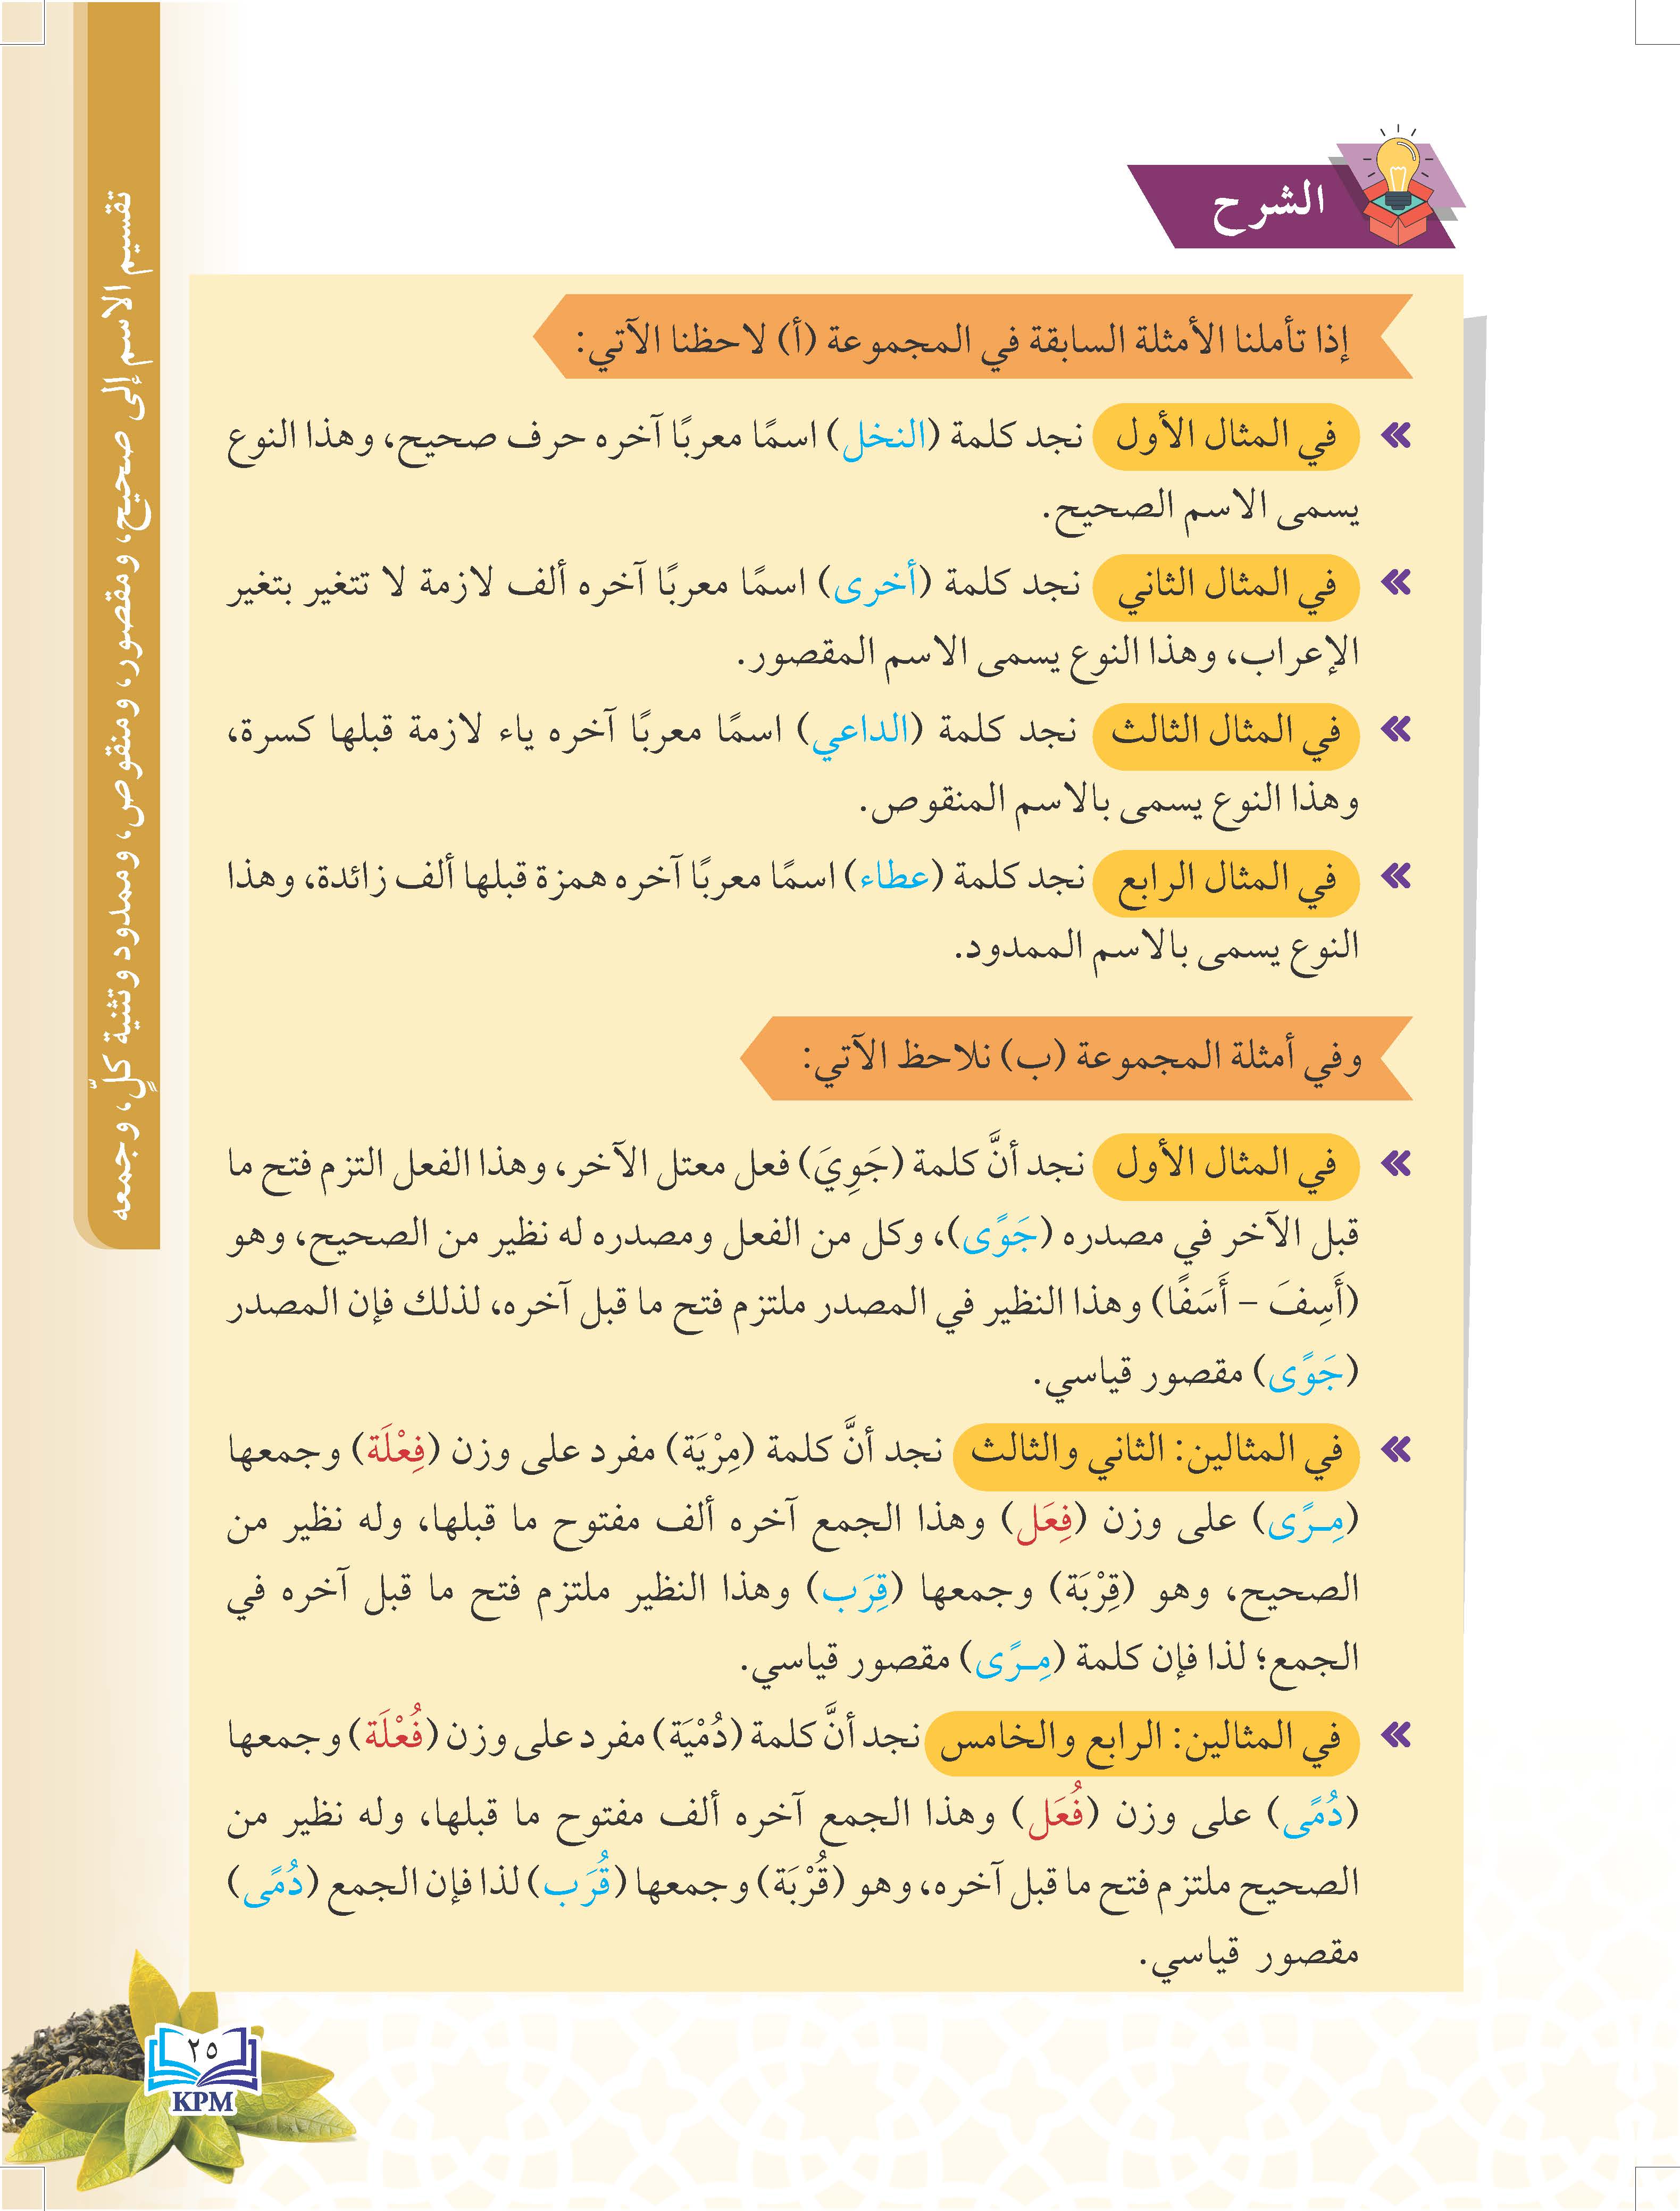 الشرح
إذا تأملنا الأمثلة السابقة في المجموعة (أ) لاحظنا الآتي:
في المثال الأول نجد كلمة (النخل) اسمًا معربًا آخره حرف صحيح، وهذا النوع
يسمى الاسم الصحيح.
في المثال الثاني نجد كلمة (أخرى) اسمًا معربًا آخره ألف لازمة لا تتغير بتغير
الإعراب، وهذا النوع يسمى الاسم المقصور.
في المثال الثالث نجد كلمة (الداعي) اسمًا معربًا آخره ياء لازمة قبلها كسرة،
وهذا النوع يسمى بالاسم المنقوص.
في المثال الرابع نجد كلمة (عطاء) اسمًا معربًا آخره همزة قبلها ألف زائدة، وهذا
النوع يسمى بالاسم الممدود.
وفي أمثلة المجموعة (ب) نلاحظ الآتي:
في المثال الأول نجد أنَّ كلمة (جَوِيَ) فعل معتل الآخر، وهذا الفعل التزم فتح ما
قبل الآخر في مصدره (جَوًى)، وكل من الفعل ومصدره له نظير من الصحيح، وهو
(أَسِفَ – أَسَفًا) وهذا النظير في المصدر ملتزم فتح ما قبل آخره، لذلك فإن المصدر
(جَوًى) مقصور قياسي.
في المثالين: الثاني والثالث نجد أنَّ كلمة (مِرْيَة) مفرد على وزن (فِعْلَة) وجمعها
(مِـرًى) على وزن (فِعَل) وهذا الجمع آخره ألف مفتوح ما قبلها، وله نظير من
الصحيح، وهو (قِرْبَة) وجمعها (قِرَب) وهذا النظير ملتزم فتح ما قبل آخره في
الجمع؛ لذا فإن كلمة (مِـرًى) مقصور قياسي.
في المثالين: الرابع والخامس نجد أنَّ كلمة (دُمْيَة) مفرد على وزن (فُعْلَة) وجمعها
(دُمًى) على وزن (فُعَل) وهذا الجمع آخره ألف مفتوح ما قبلها، وله نظير من
الصحيح ملتزم فتح ما قبل آخره، وهو (قُرْبَة) وجمعها (قُرَب) لذا فإن الجمع (دُمًى)
مقصور قياسي.
تقسيم الاسم إلى صحيح، ومقصور، ومنقوص، وممدود وتثنية كلٍّ، وجمعه
٢٥
KPM